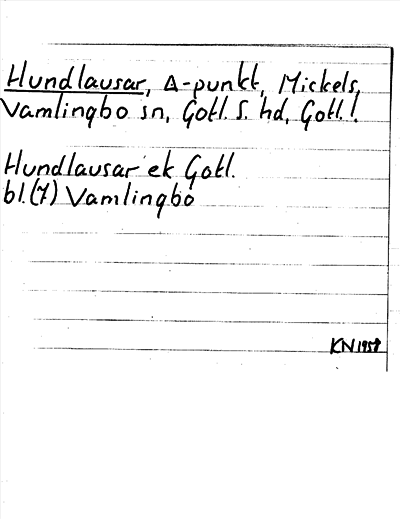 Hundlausar, Δ-punkt, Mickels,
Vamlingbo sn, Gotl. S. hd, Gotl.!
Hundlausar ek Gotl.
bl. (7) Vamlingbo
KN 1958